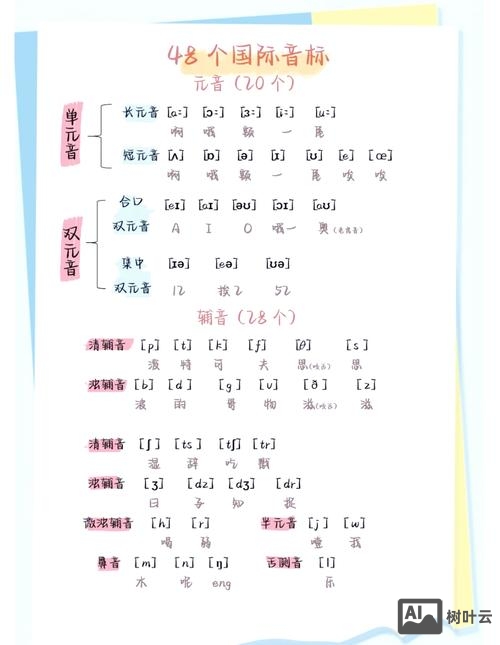 48个国际音标
元音(20个)
单元音
长元音 [ɑː] [ɔː] [ɜː] [iː] [uː]
啊 哦 颗 一 屋
短元音 [ʌ] [ɒ] [ə] [ɪ] [ʊ] [e] [æ]
啊 哦 颗 一 唉 唉
双元音
合口 [eɪ] [aɪ] [əʊ] [ɔɪ] [aʊ]
双元音 A I O 哦一 奥
集中 [ɪə] [eə] [ʊə]
双元音 12 挨2 52
辅音(28个)
清辅音 [p] [t] [k] [f] [θ] [s]
泼 特 可 夫 思(咬舌) 思
浊辅音 [b] [d] [g] [v] [ð] [z]
波 的 哥 物 滋(咬舌) 滋
清辅音 [ʃ] [ts] [tʃ] [tr]
湿 辞 吃 戳
浊辅音 [ʒ] [dz] [dʒ] [dr]
日 子 知 捉
[h] [r] 单元音 [j] [w]
喝 弱 我
鼻音 [m] [n] [ŋ] 舌侧音 [l]
木 呢 eng 乐
AI 树叶云